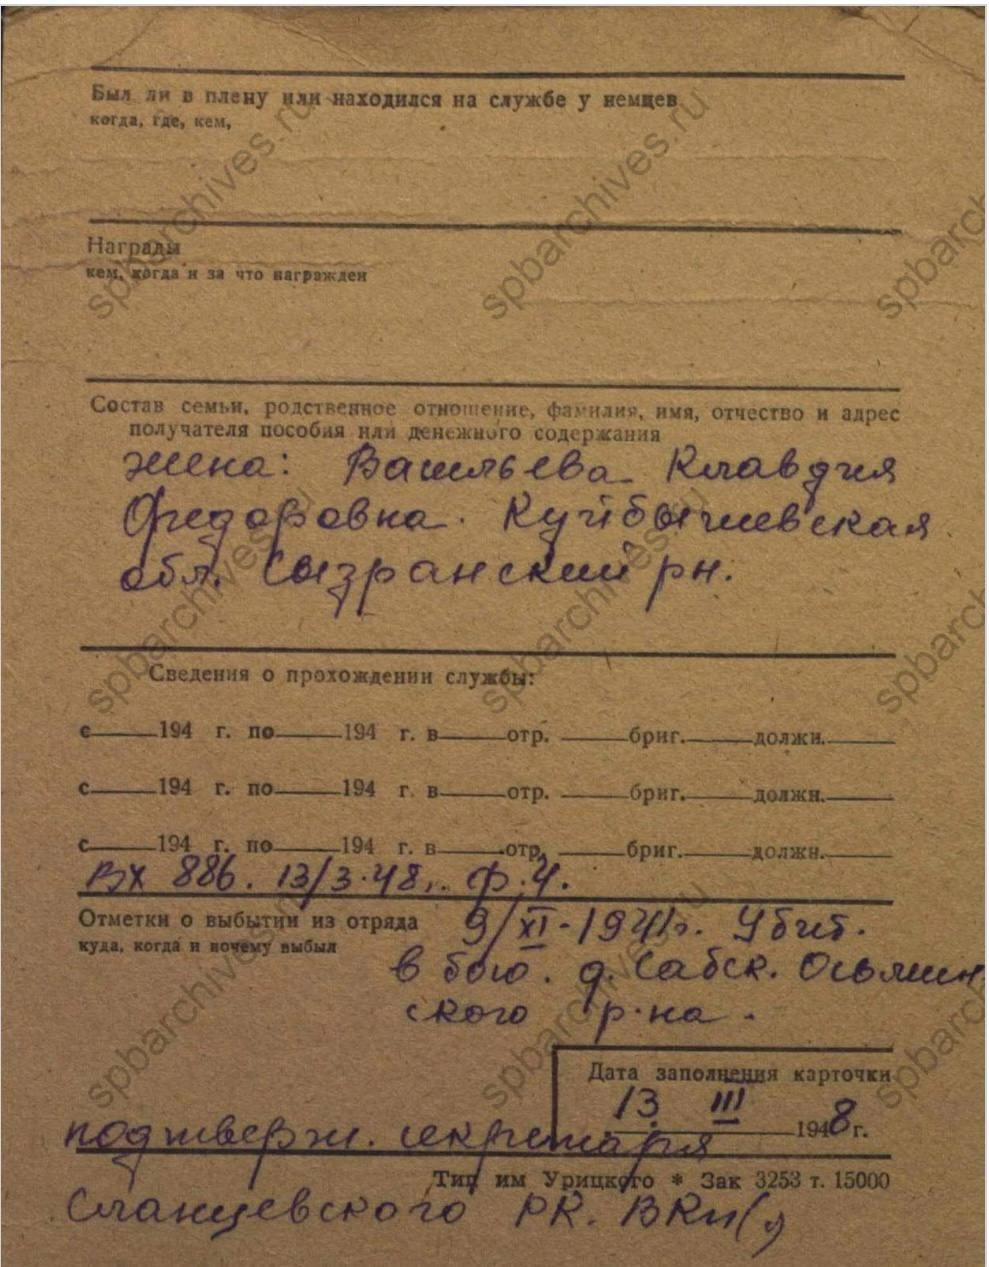 Был ли в плену или находился на службе у немцев
когда, где, кем,
Награды
кем, когда и за что награжден
Состав семьи, родственное отношение, фамилия, имя, отчество и адрес
получателя пособия или денежного содержания
жена: Васильева Клавдия
Федоровна. Куйбышевская
обл. Сызранский рн.
Сведения о прохождении службы:
с 194 г. по 194 г. в отр. бриг. должн.
с 194 г. по 194 г. в отр. бриг. должн.
с 194 г. по 194 г. в отр. бриг. должн.
Вх 886. 13/3.48г. ф.4.
Отметки о выбытии из отряда
куда, когда и почему выбыл
9/XI-1941г. Убит.
в бою. д. Сабск. Осьмин
ского р-на.
Дата заполнения карточки
13 III 1948 г.
подтверж. секретаря
Тип им Урицкого * Зак 3253 т. 15000
Сланцевского РК. ВКП(
spbarchives.ru